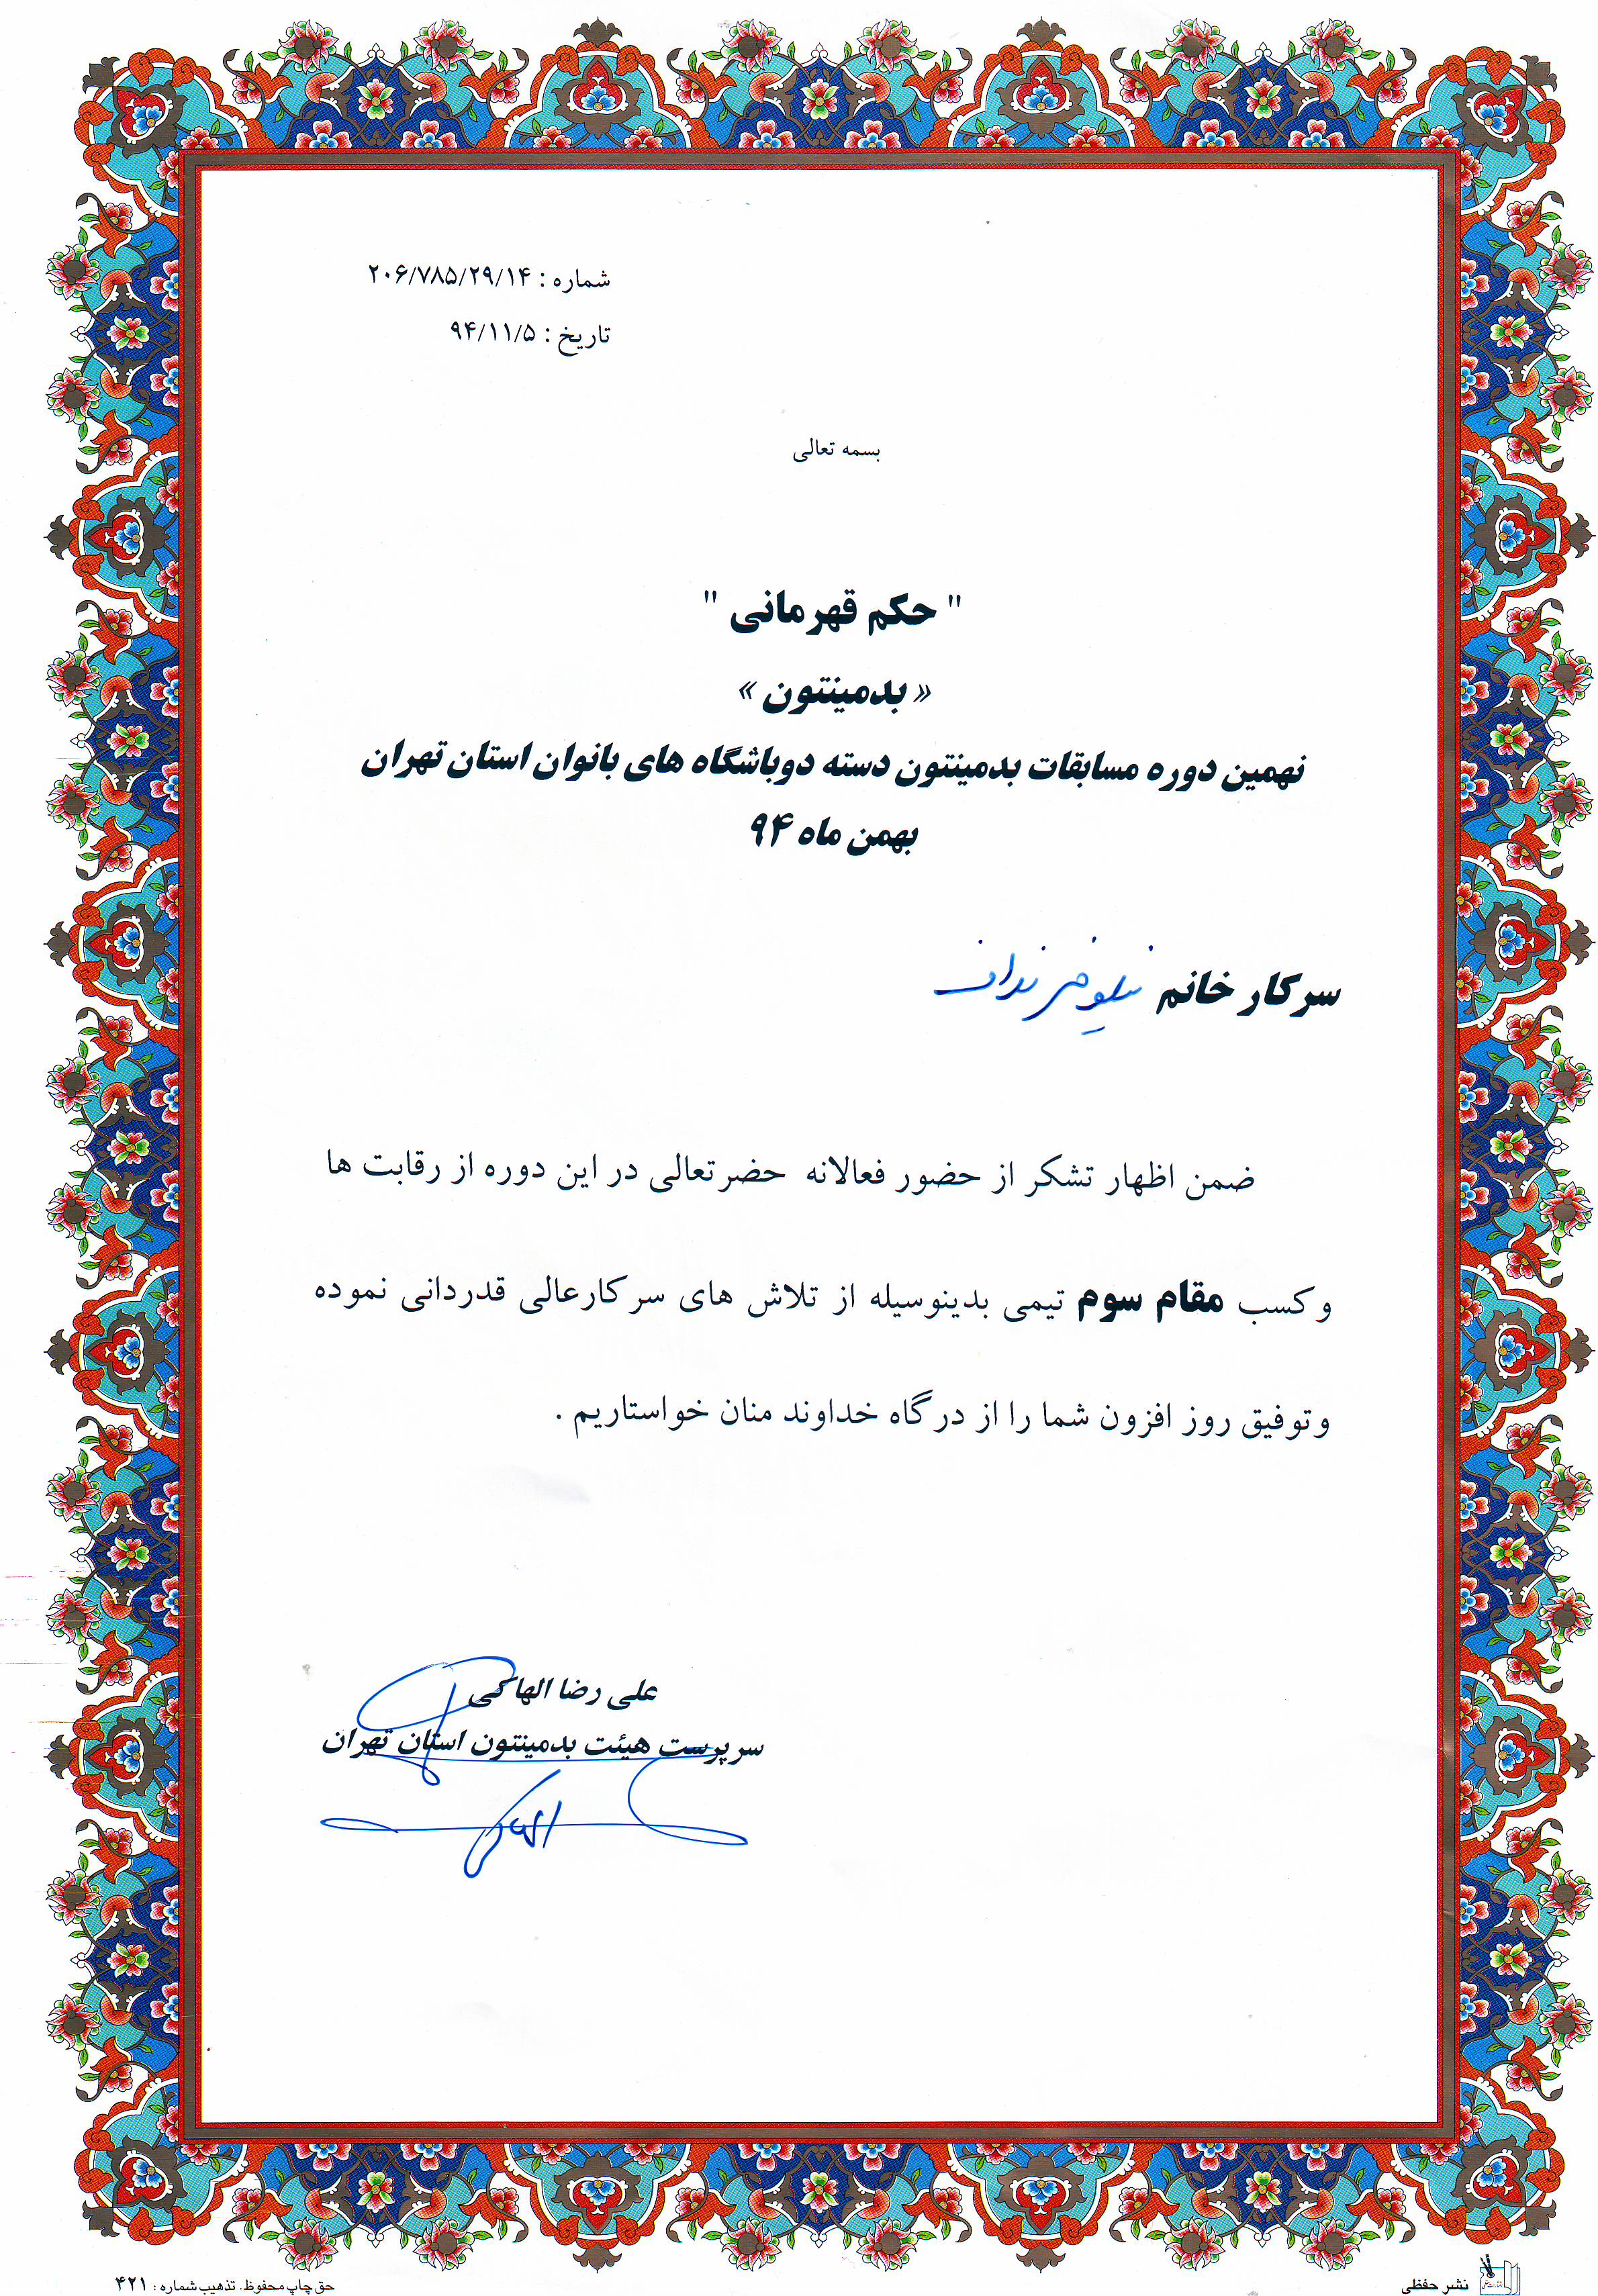 شماره : ۲۰۶/۷۸۵/۲۹/۱۴
تاریخ : ۹۴/۱۱/۵
بسمه تعالی
" حکم قهرمانی "
« بدمینتون »
نهمین دوره مسابقات بدمینتون دسته دوباشگاه های بانوان استان تهران
بهمن ماه ۹۴
سرکار خانم
ضمن اظهار تشکر از حضور فعالانه حضرتعالی در این دوره از رقابت ها
و کسب مقام سوم تیمی بدینوسیله از تلاش های سرکارعالی قدردانی نموده
و توفیق روز افزون شما را از درگاه خداوند منان خواستاریم .
علی رضا الهاکمی
سرپرست هیئت بدمینتون استان تهران
نشر حفظی
حق چاپ محفوظ. تذهیب شماره : ۴۲۱